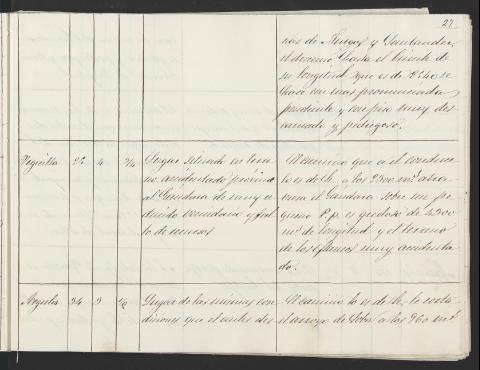 27
cias de Burgos y Santander,
el camino hasta el límite de
su longitud que es de
hace con mas pronunciada
pendiente y con piso muy des
carnado y pedregoso.
Reguilla 25 4 3/4 Lugar situado en terre
no accidentado próximo
al Gándara de muy re
ducido vecindario y fal
to de recursos
El camino que a el conduce
lo es de h. a los 2300 m.s atra
viesa el Gándara sobre un pe
queño P. p. es de 4500
m.s de longitud y el terreno
de los flancos muy accidenta
do.
34 3 1/2 Lugar de las mismas con
diciones que el antes des
El camino lo es de h. lo corta
el arroyo de a los 960 m.s